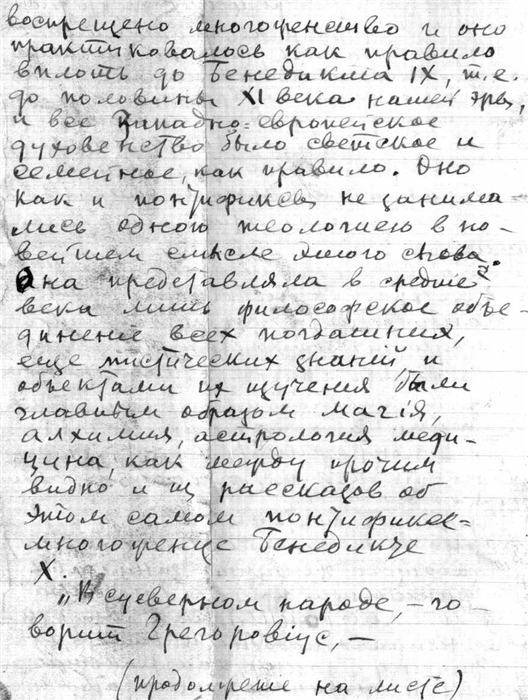 воспрещено многоженство и оно
практиковалось как правило
вплоть до Бенедикта IX, т.е.
до половины XI века нашей эры,
и все западно-европейское
духовенство было светское и
семейное, как правило. Оно
как и понтифики, не занима-
лись одною теологиею в но-
вейшем смысле этого слова.
Она представляла в средние
века лишь философское объе-
динение всех тогдашних,
еще мистических знаний, и
объектами их изучения были
главным образом магія,
алхимия, астрология меди-
цина, как между прочим
видно и из рассказов об
этом самом понтифике-
многоженце Бенедикте
X.
„В суеверном народе, – го-
ворит Грегоровіус, –
(продолжение на листе)